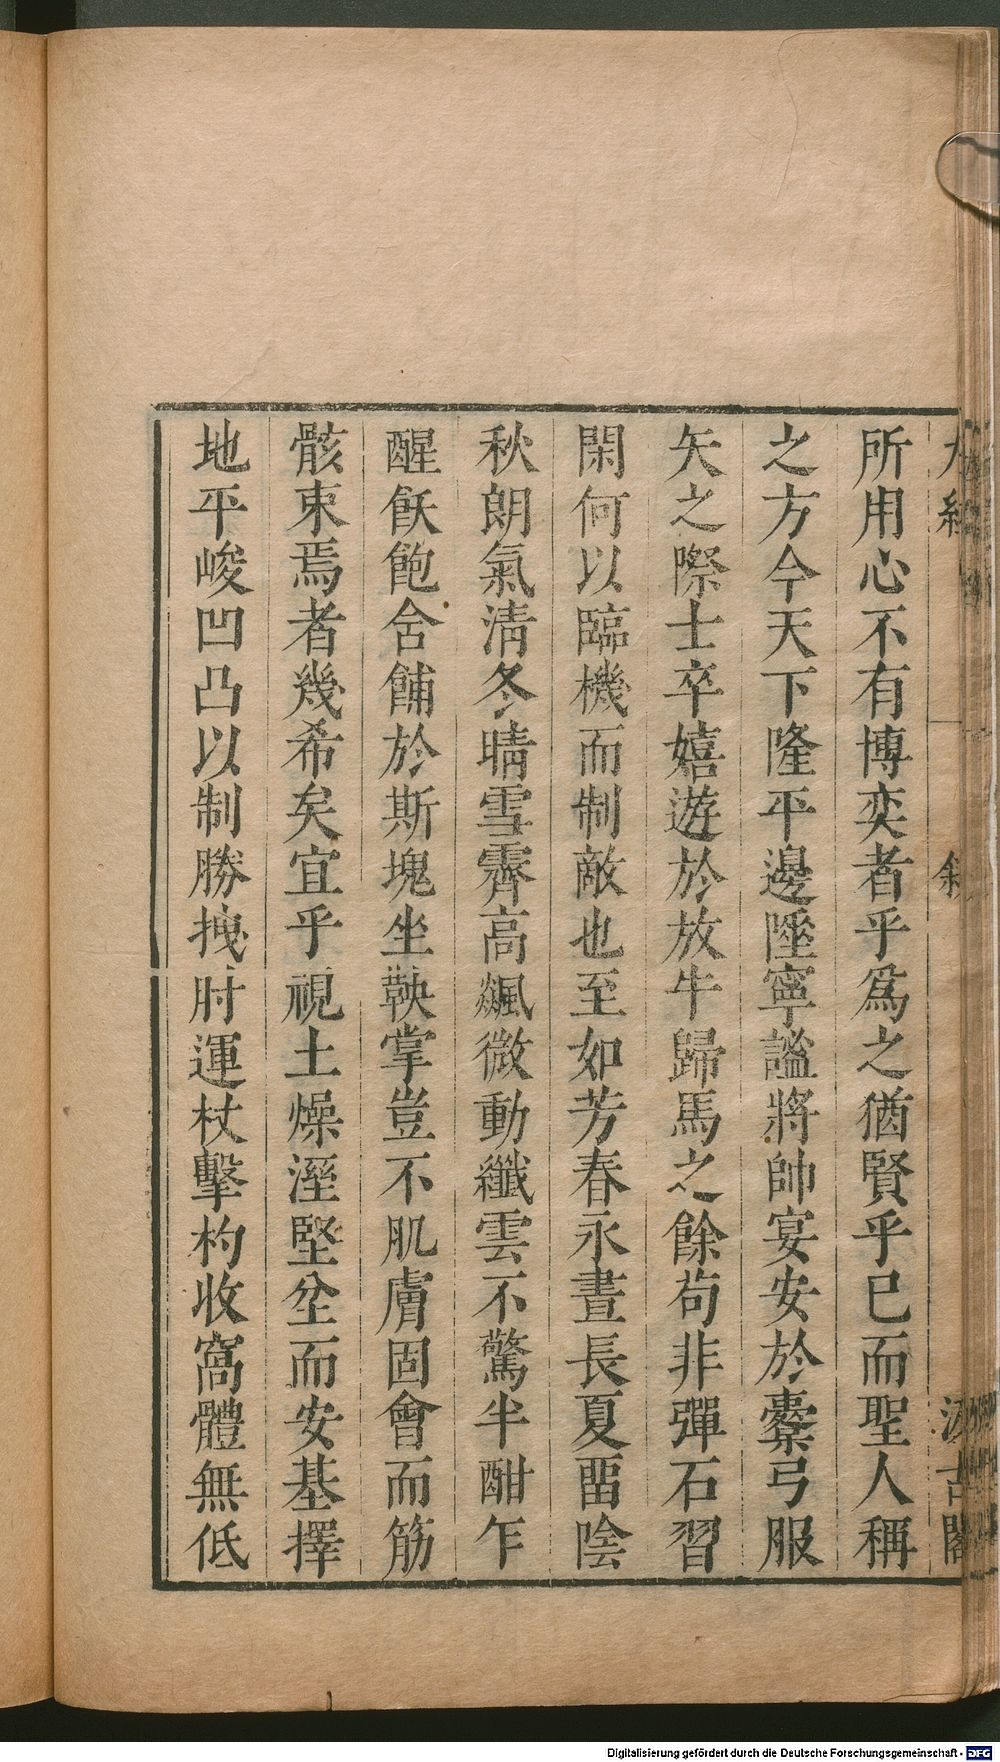 所用心不有博奕者乎爲之猶賢乎已而聖人稱
之方今天下隆平邊陲寧謐將帥宴安於櫜弓服
矢之際士卒嬉遊於放牛歸馬之餘茍非彈石習
閑何以臨機而制敵也至如芳春永晝長夏畱陰
秋朗氣清冬晴雪霽高飊微動纖雲不驚半酣乍
醒飫飽舍餔於斯塊坐鞅掌豈不肌膚固會而筋
骸束焉者幾希矣宜乎視土燥溼堅坌而安基擇
地平峻凹凸以制勝拽肘運杖擊杓收窩體無低
敘
汲古閣
Digitalisierung gefördert durch die Deutsche Forschungsgemeinschaft - DFG